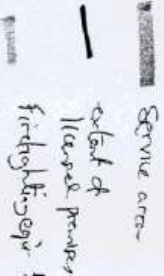 Service area
extent of
licensed premises
Firefighting equip